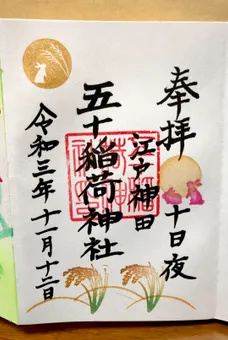 奉拝
十日夜
江戸神田
五十稲荷神社
令和三年十一月十二日